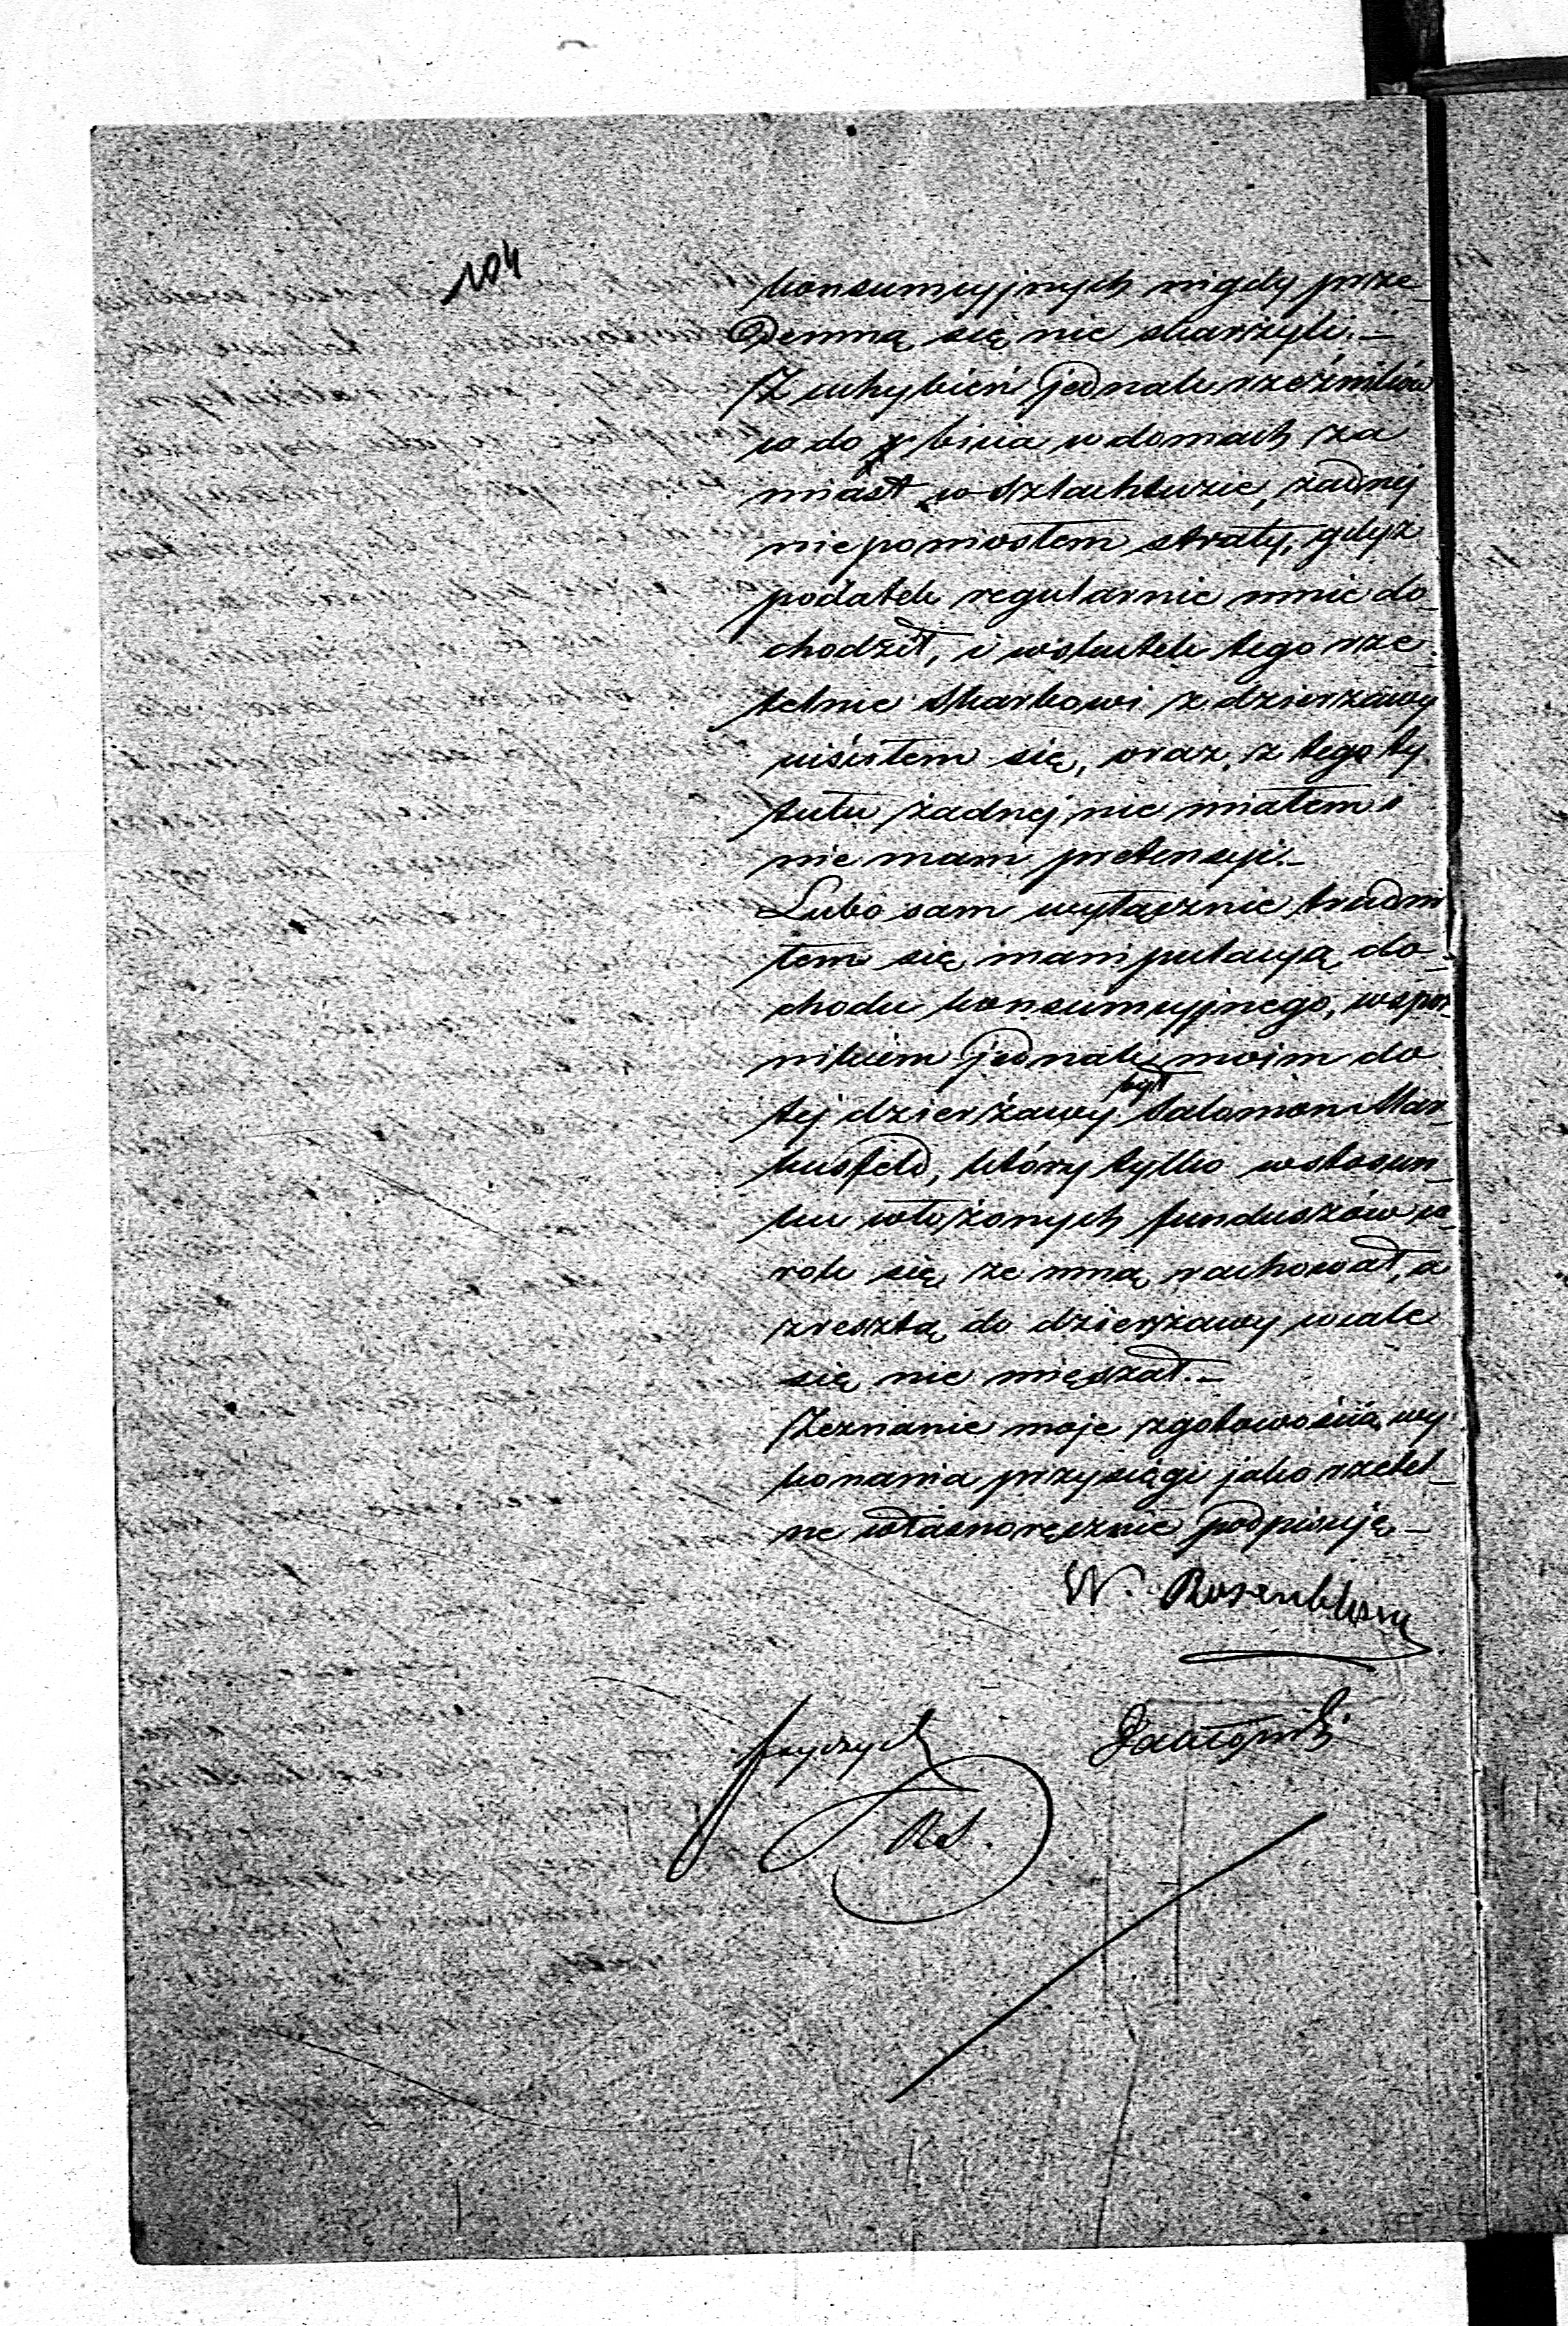 104
konsumcyjnych nigdy prze
demną się nie skarżyli.—
Z uchybień jednak rzeźników
co do bicia w domach za
miast w Szlachtuzie, żadnej
nie poniosłem straty, gdyż
podatek regularnie mnie do-
chodził, i wskutek tego rze-
telnie Skarbowi z dzierżawy
uiściłem się, oraz z tego ty-
tułu żadnej nie miałem i
nie mam pretensyi.—
Lubo sam wyłącznie trudni
łem się manipulacyą do-
chodu konsumcyjnego, wspól-
nikiem jednak moim do
tej dzierżawy był Salomon Mar-
kusfeld, który tylko w stosun-
ku włożonych funduszów co
rok się ze mną rachował, a
zresztą do dzierżawy wcale
się nie mięszał.—
Zeznanie moje z gotowością wy-
konania przysięgi jako rzetel-
ne własnoręcznie podpisuję—
W. Rosenblum